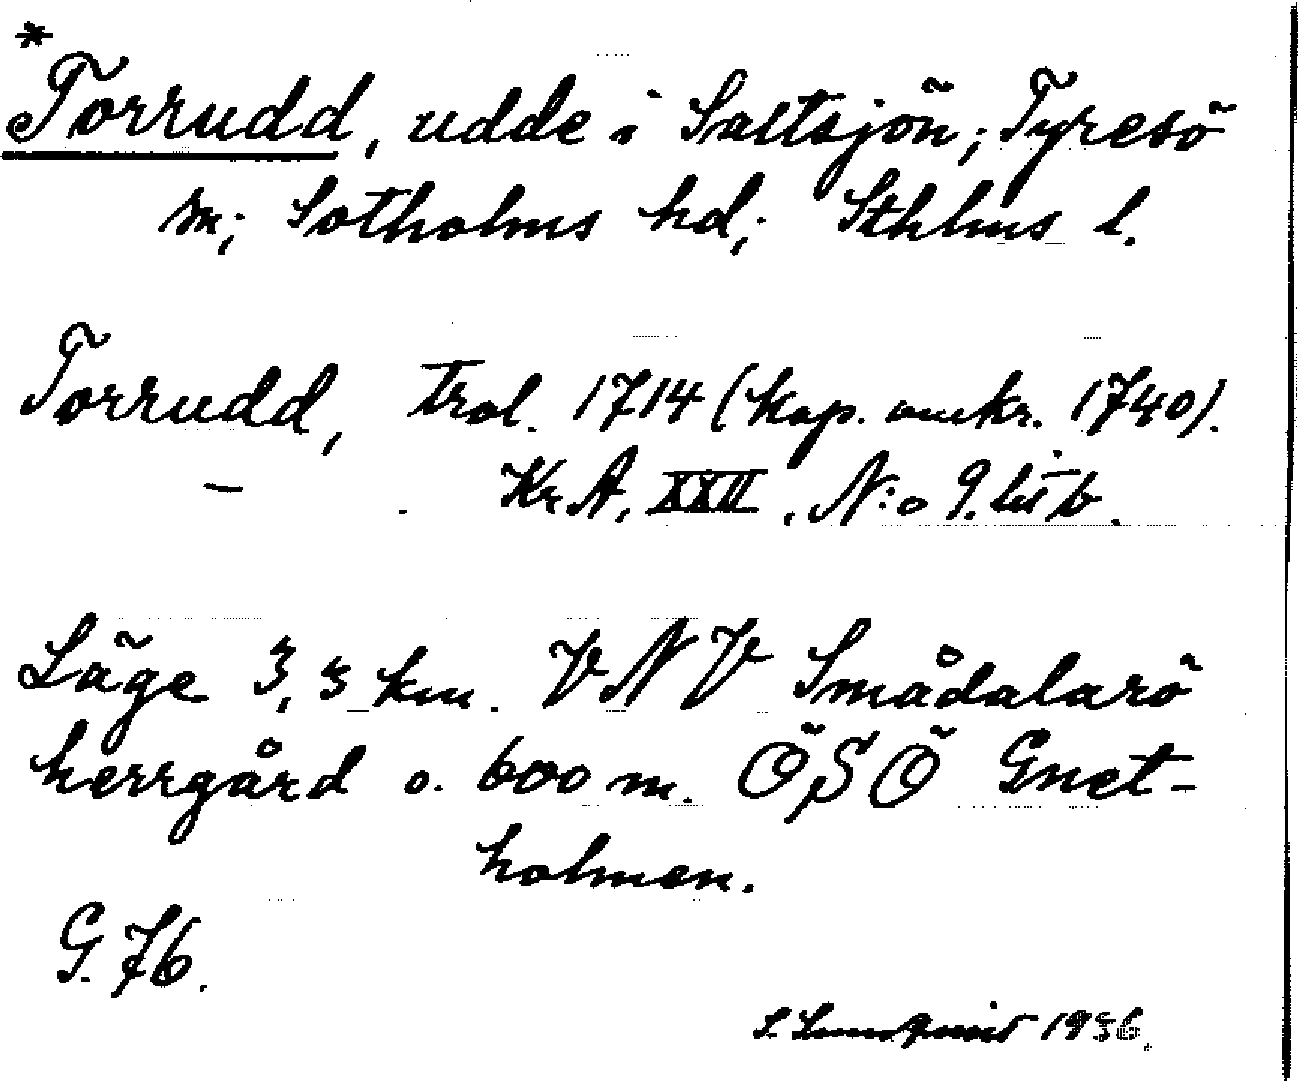 *
Torrudd, udde i Saltsjön; Tyresö
sn; Sotholms hd; Sthlms l.
Torrudd, trol. 1714 (kop. omkr. 1740).
— . Kr. A. XXII, N:o 9. lit b.
Läge 3,3 km. VNV Smådalarö
herrgård o. 600 m. ÖSÖ Gnet-
holmen.
G. 76.
1936.